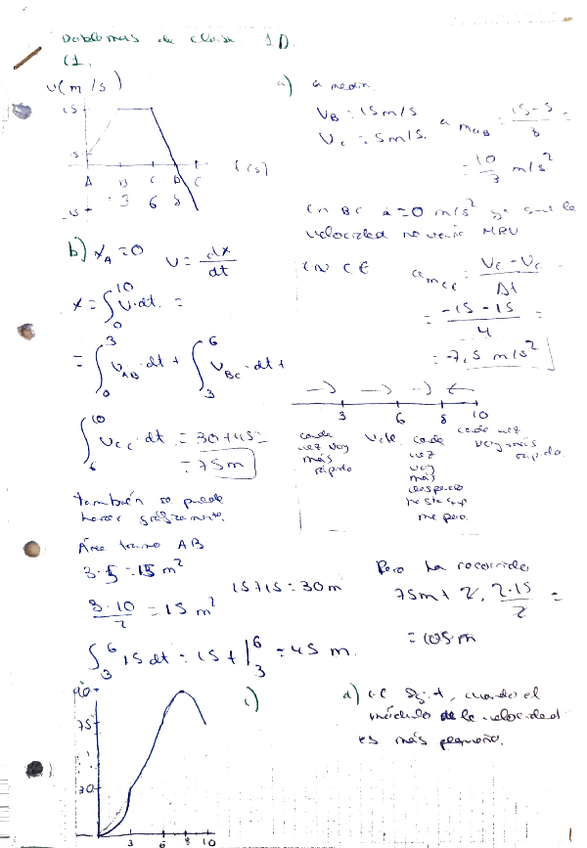 Problemas de clase 1D.
C1.
v(m/s)
15
5
-15
A B C D E
3 6 8
t(s)
a) a media.
VB = 15m/s
Vc = 5m/s.
= 10/3 m/s²
En BC a = 0 m/s² ya que la
velocidad no varía MRU
EN CE
= -15 - 15 / 4 =
= -7,5 m/s²
b) xA = 0 v = dx/dt
x = ∫₀¹⁰ v·dt. =
= ∫₀³ vAB·dt + ∫₃⁶ vBC·dt +
∫₆¹⁰ vCE·dt = 30+45=
= 75m
3 6 8 10
cada
vez voy
más
rápido
cada
vez
voy
más
despacio
hasta que
me paro.
cada vez
voy más
rápido.
también se puede
hacer gráficamente.
Área tramo AB
3·5 = 15 m²
3·10/2 = 15 m²
15+15 = 30m
∫₃⁶ 15dt = 15t|₃⁶ = 45 m.
Pero ha recorrido
75m + 2·2·15/2 =
= 105m
c)
90
75
30
3 6 8 10
d)
cuando el
módulo de la velocidad
es más pequeño.